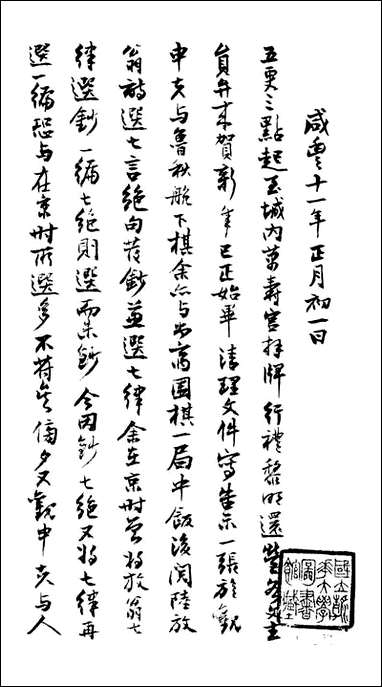 咸豐十一年正月初一日
五更三點起至城內萬壽宮拜牌行禮黎明還營各
員弁來賀新年巳正始畢清理文件寫告示一張旋觀
申夫與魯秋航下棋余亦與尚齋圍棋一局中飯後閱陸放
翁詩選七言絕句發鈔并選七律余在京時曾將放翁七
律選鈔一編七絕則選而未鈔今因鈔七絕又將七律再
選一編恐與在京時所選多不符矣傍夕又觀申夫與人